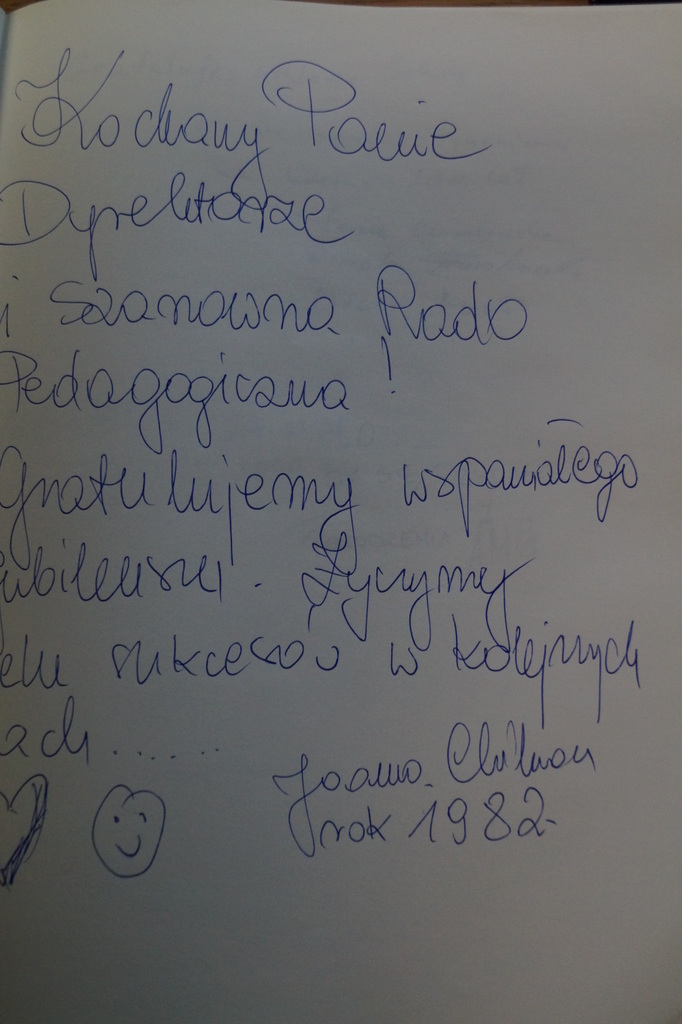 Kochany Panie
Dyrektorze
i Szanowna Rado
Pedagogiczna!
Gratulujemy wspaniałego
jubileuszu. Życzymy
elu sukcesów w kolejnych
ach.......
Joanna
rok 1982